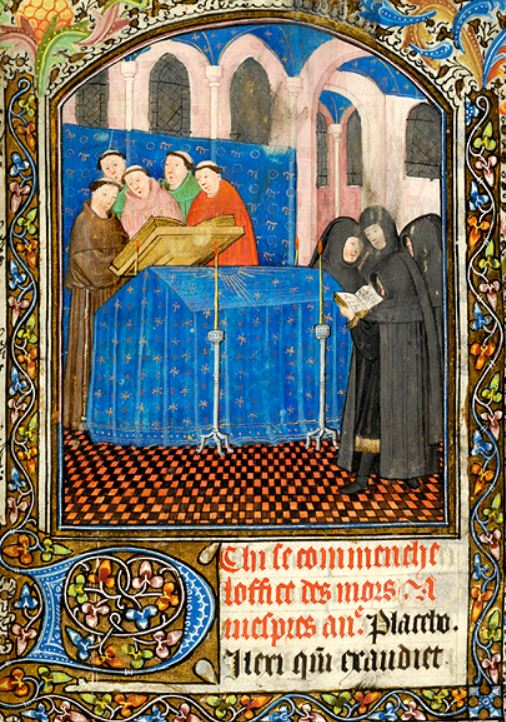 Chi se commenche
loffice des mors. A
uespres anᵉ. Placebo.
DIlexi qm̄ exaudiet.